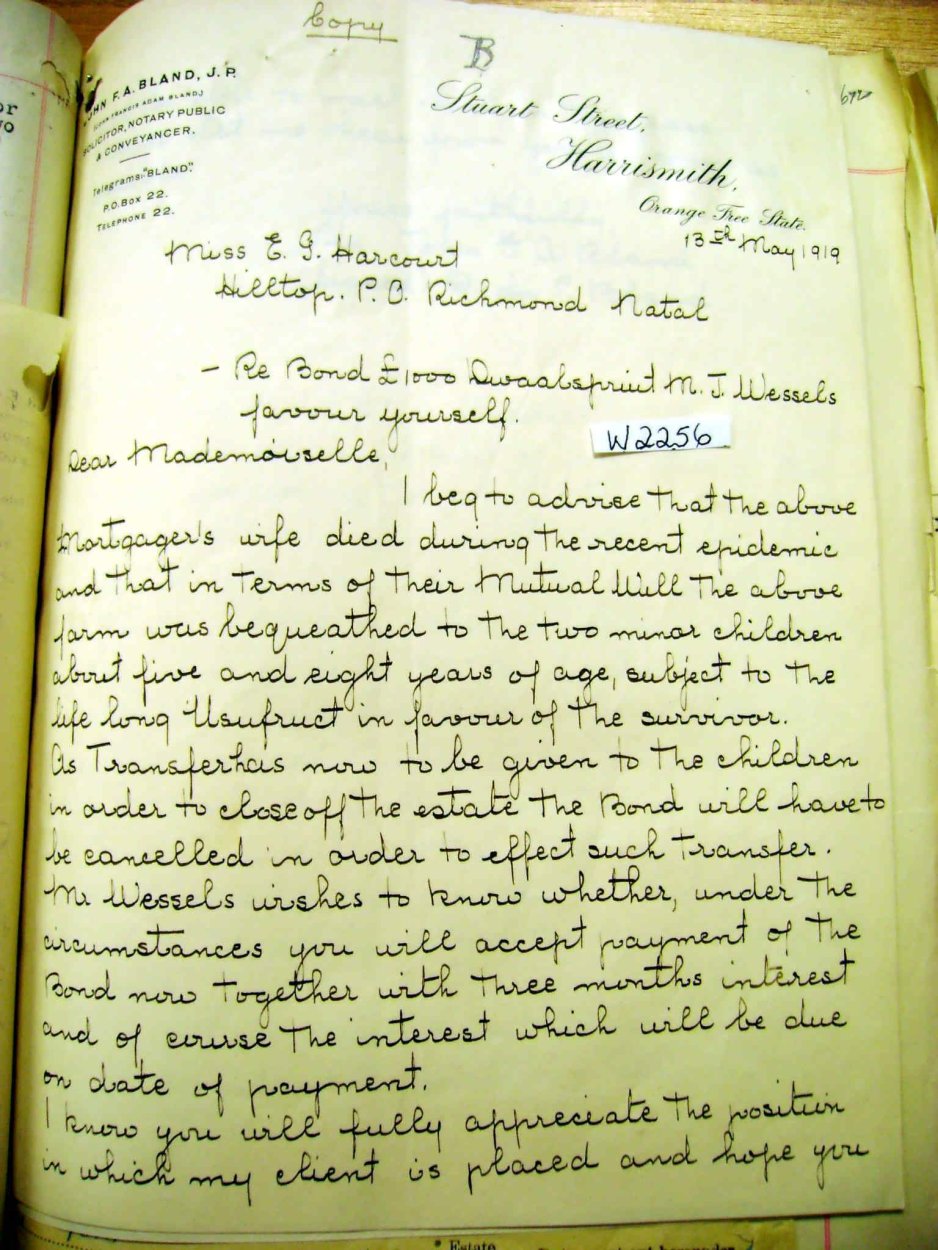 Copy
B
JOHN F. A. BLAND, J. P.
(JOHN FRANCIS ADAM BLAND)
SOLICITOR, NOTARY PUBLIC
& CONVEYANCER.
Telegrams: "BLAND".
P.O. Box 22.
TELEPHONE 22.
Stuart Street,
Harrismith,
Orange Free State.
13th May 1919
Miss E. G. Harcourt
Hilltop. P. O. Richmond Natal
- Re Bond £1000 Dwaalspruit M. J. Wessels
favour yourself.
W2256
Dear Mademoiselle,
I beg to advise that the above
Mortgager's wife died during the recent epidemic
and that in terms of their Mutual Will the above
farm was bequeathed to the two minor children
about five and eight years of age, subject to the
life long Usufruct in favour of the survivor.
As Transfer has now to be given to the children
in order to close off the estate the Bond will have to
be cancelled in order to effect such transfer.
Mr Wessels wishes to know whether, under the
circumstances you will accept payment of the
Bond now together with three months interest
and of course the interest which will be due
on date of payment.
I know you will fully appreciate the position
in which my client is placed and hope you
Estate